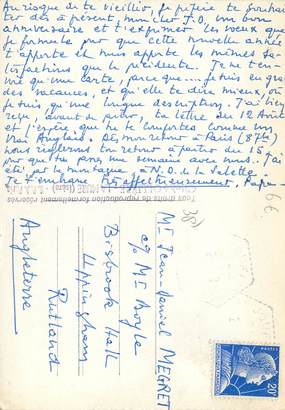 Au risque de te vieillir, je préfère te souhaiter
dès à présent, mon cher J.D, un bon
anniversaire et t'exprimer les voeux que
je formule pour que cette nouvelle année
t'apporte et nous apporte les mêmes sa-
tisfactions que la précédente. Je ne t'en-
voie qu'une carte, parce que... je suis en
des vacances, et qu'elle te dire mieux, où
je suis qu'une longue description. J'ai bien
reçu, avant de partir, ta lettre du 12 Août
et j'espère que tu te comportes comme un
vrai Anglais. Dès mon retour à Paris (87e)
nous règlerons ton retour à partir du 15
pour que tu passes une semaine avec nous. J'ai
été, par la montagne à N.D. de la Salette
T'embrasse très affectueusement. Papa
Tous droits de reproduction formellement réservés
Mr Jean-Daniel MEGRET
c/o Mr Boyle
Bisbrook Hall
Uppingham
Rutland
Angleterre
35f
6€
20F